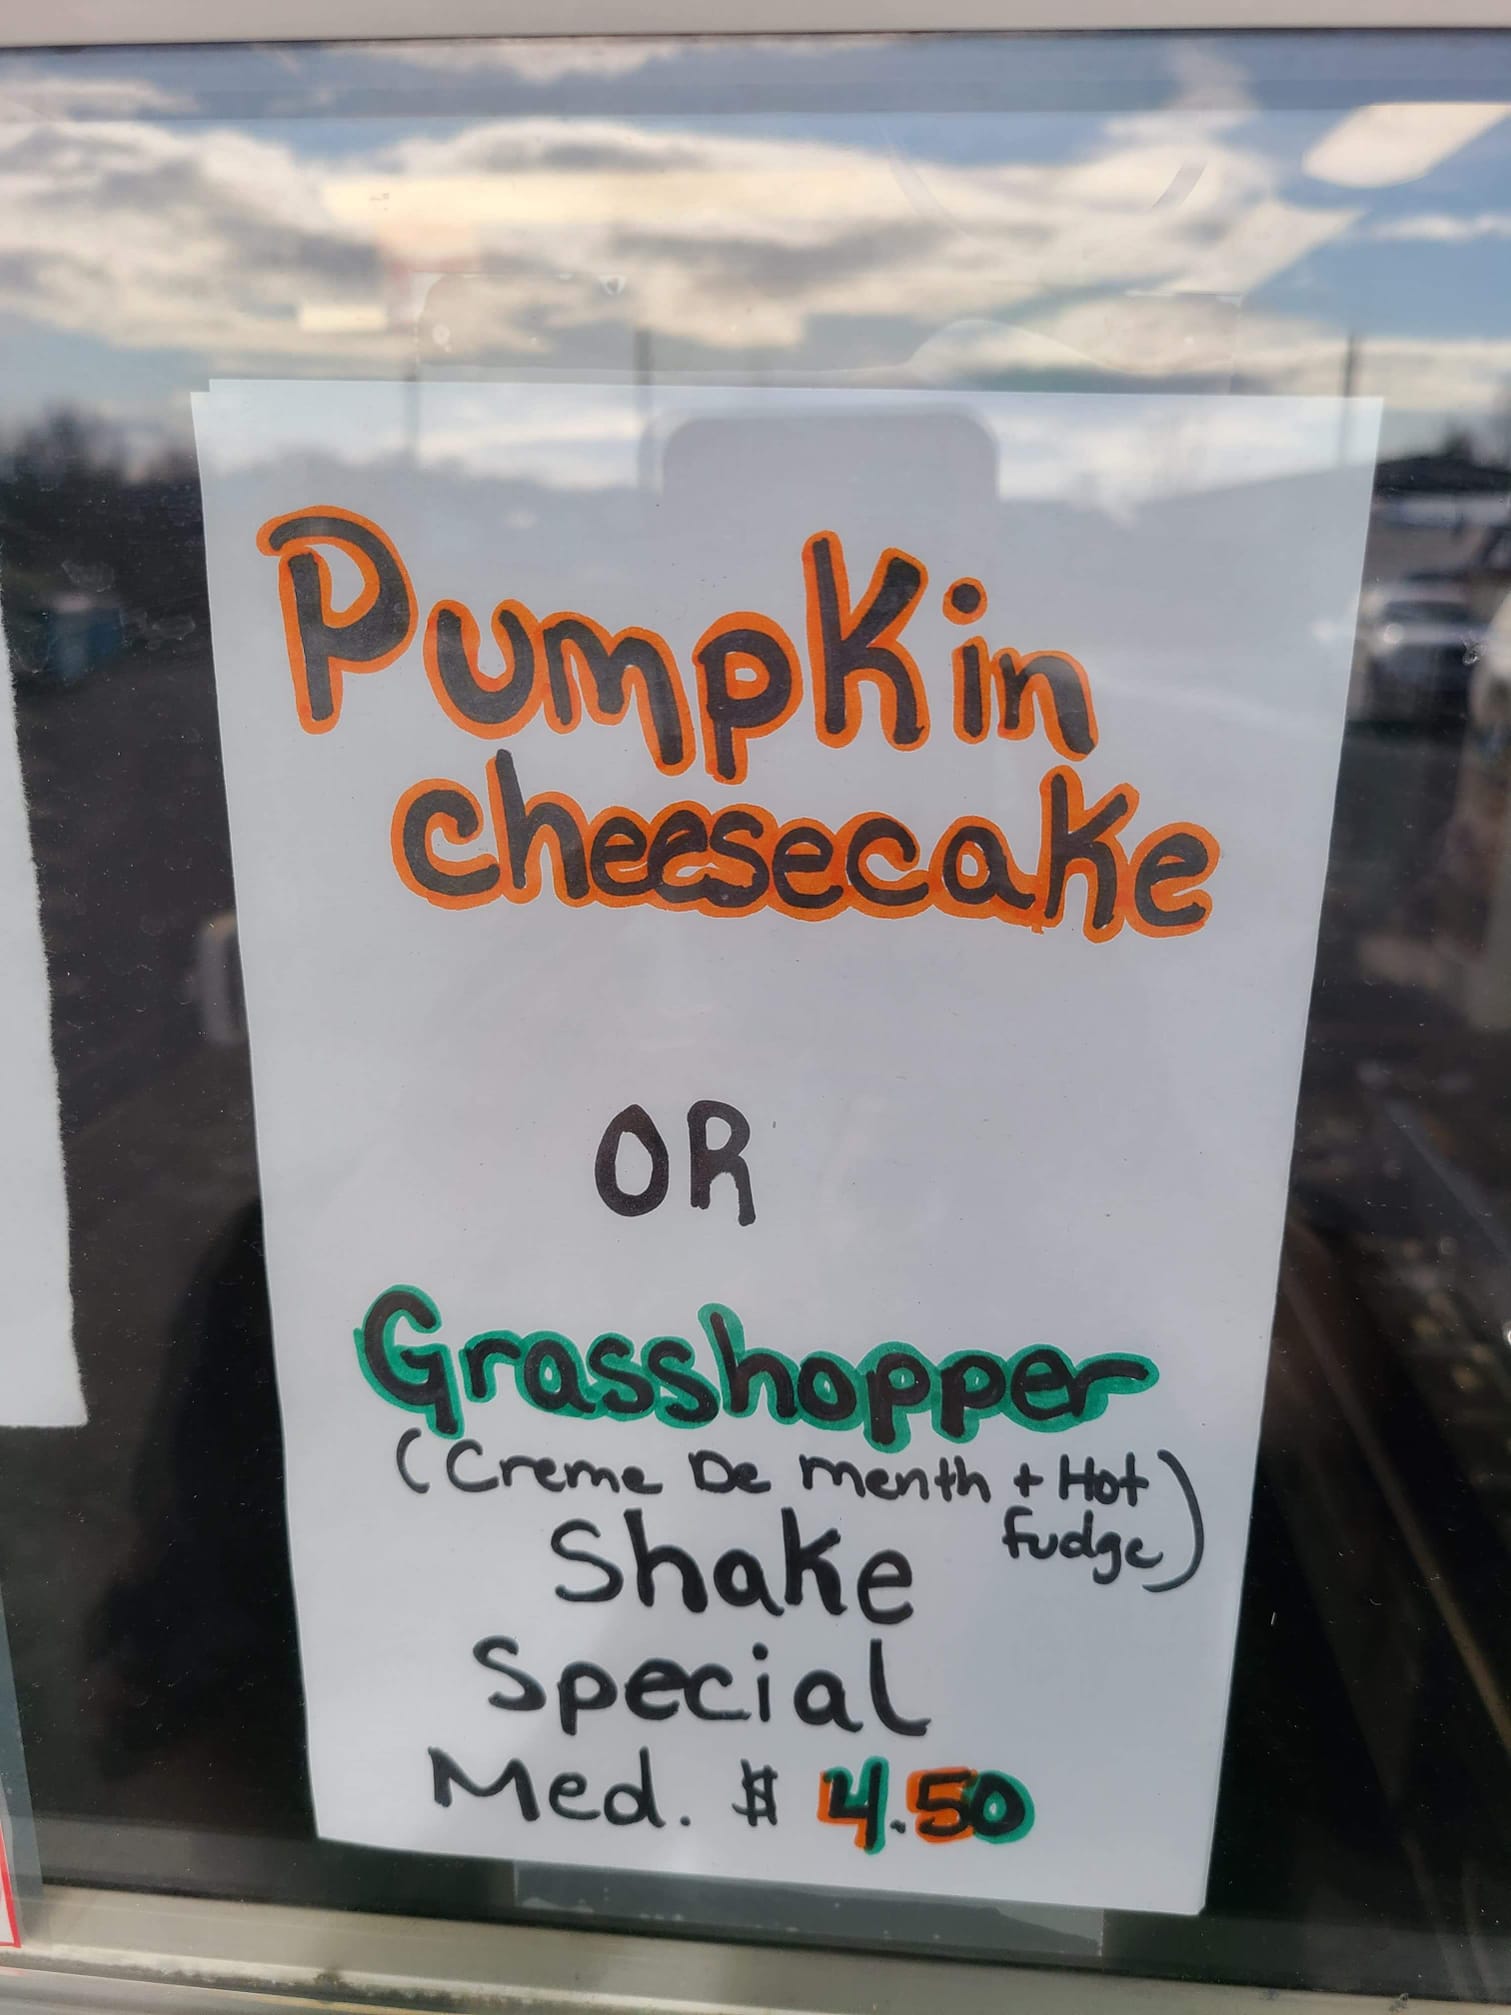 Pumpkin
cheesecake
OR
Grasshopper
(Creme De menth + Hot
fudge)
Shake
Special
Med. $ 4.50